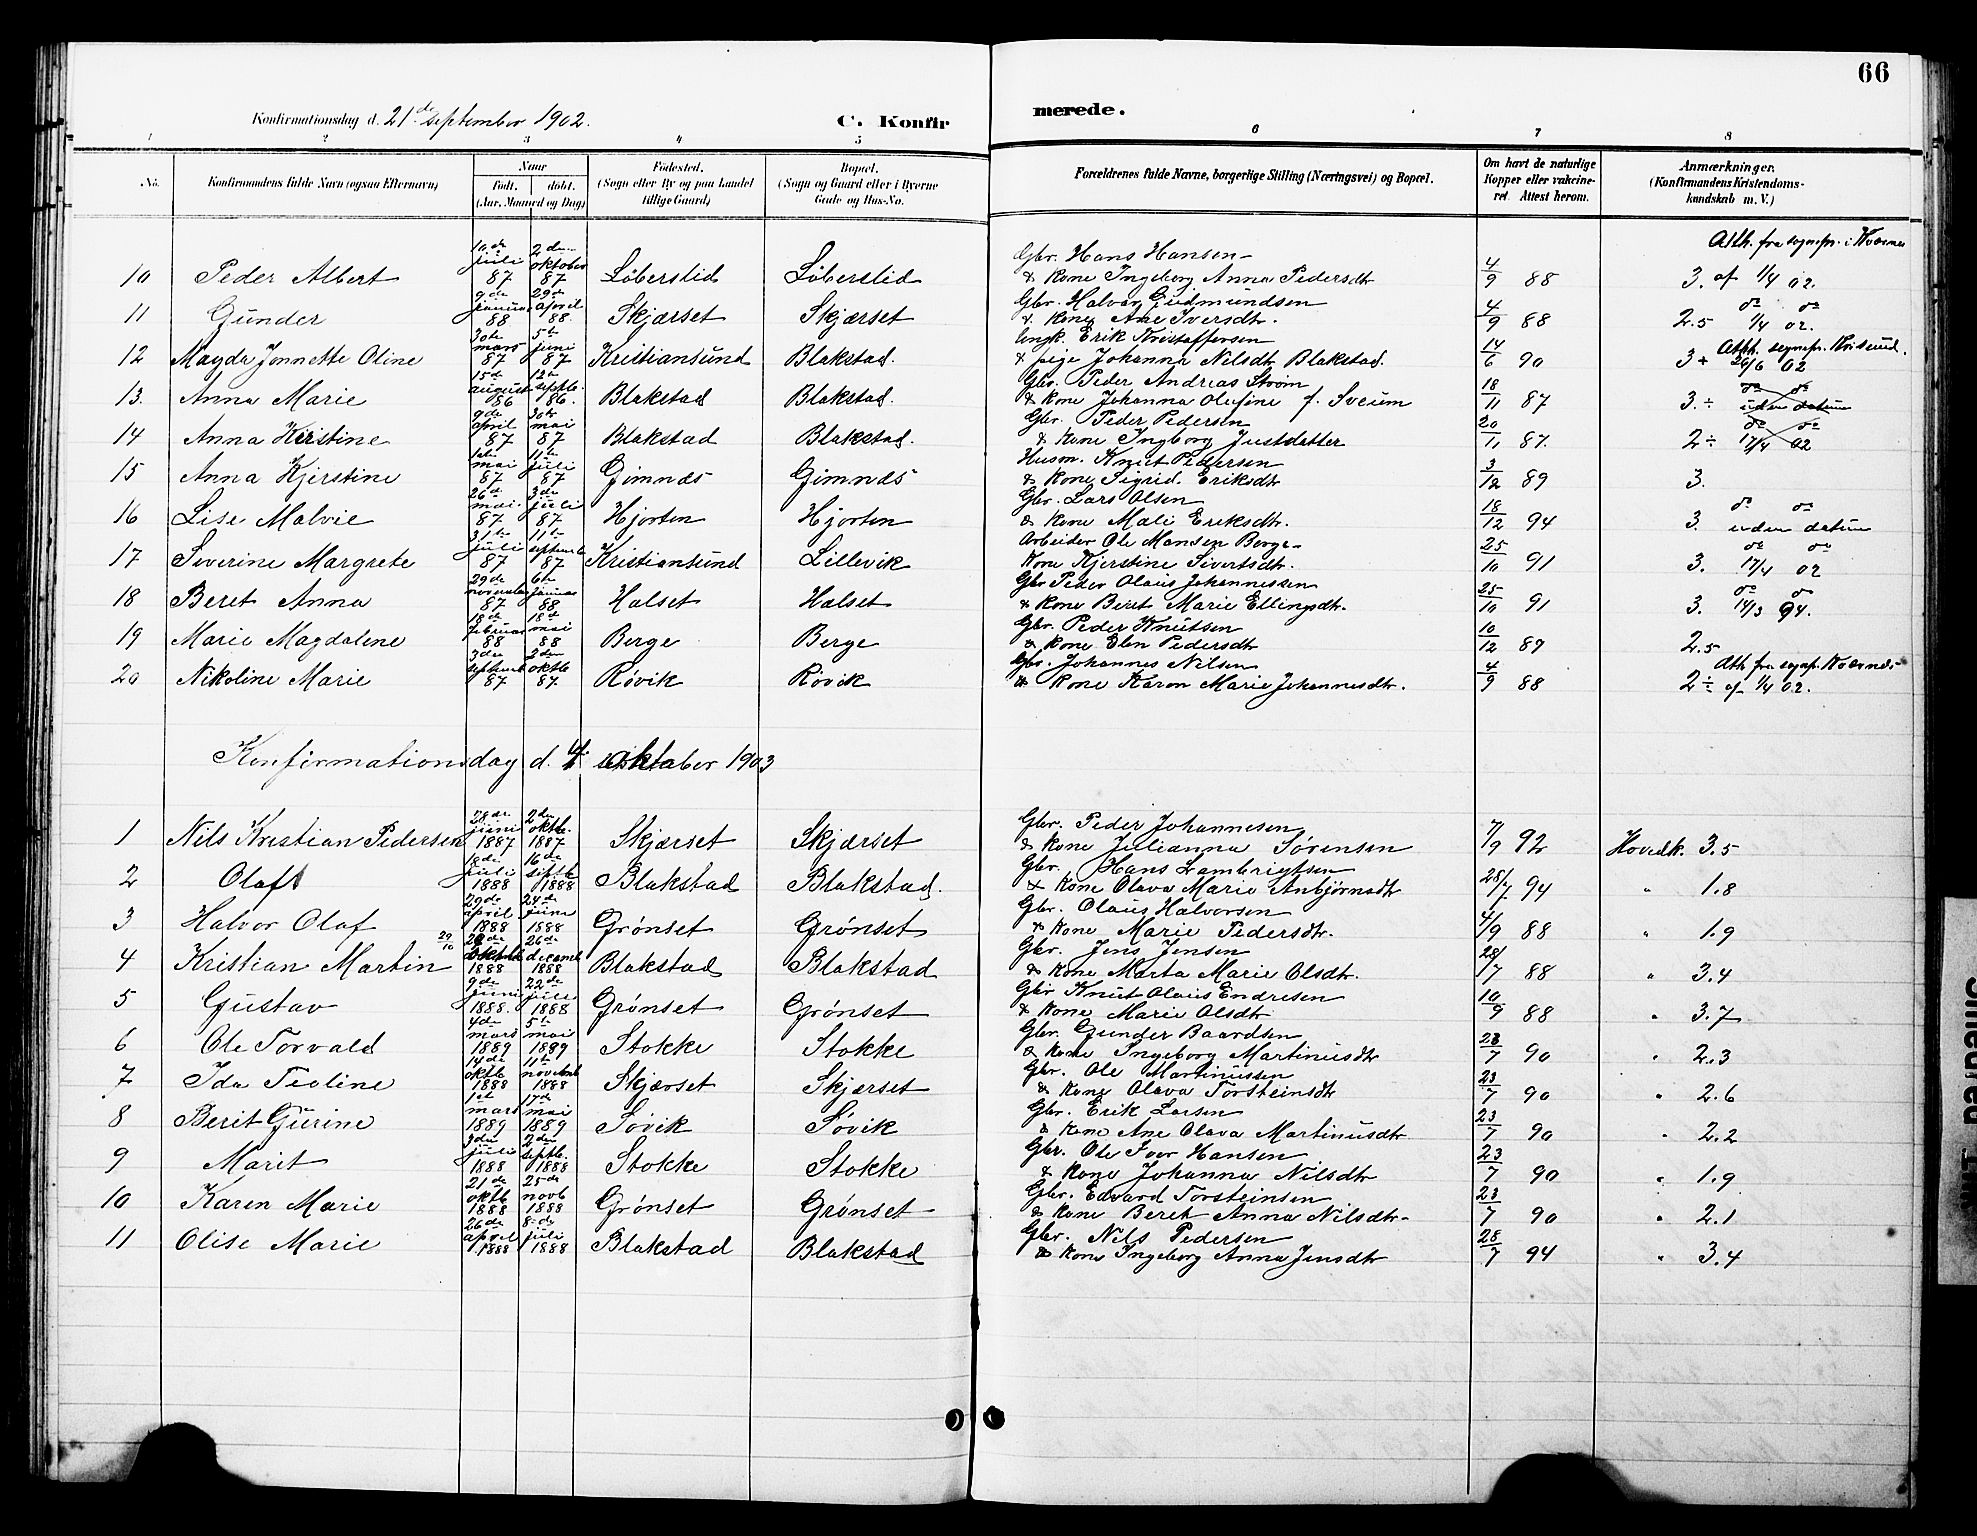 66
Konfirmationsdag d. 21de september 1902.
C. Konfirmerede.
1 2 3 4 5 6 7 8
No. Konfirmandens fulde Navn (ogsaa Efternavn) Naar født. døbt. (Aar, Maaned og Dag) Fødested. (Sogn eller By og paa Landet tillige Gaard) Bopæl. (Sogn og Gaard eller i Byerne Gade og Hus-No. Forældrenes fulde Navne, borgerlige Stilling (Næringsvei) og Bopæl. Om havt de naturlige Kopper eller vakcineret. Attest herom. Anmærkninger. (Konfirmandens Kristendomskundskab m. V.)
10 Peder Albert 10de juli 87 2den oktober 87 Løberslid Løberslid Gbr. Hans Hansen & kone Ingeborg Anna Pedersdtr 4/9 88 3. Atth. fra sognepr. i Kvernes af 1/4 02.
11 Gunder 9de januar 88 29de april 88 Skjærset Skjærset Gbr. Halvor Gudmundsen & kone Ane Iversdtr. 4/9 88 2.5 do do 1/4 02.
12 Magda Jonnette Oline 30te mars 87 5te juni 87 Kristiansund Blakstad. Ungk. Erik Kristoffersen & pige Johanna Nilsdt Blakstad. 14/6 90 3+ Atth. sognepr. Krisund. 26/6 02
13. Anna Marie 15de august 86 12te septb. 86. Blakstad Blakstad. Gbr. Peder Andreas Strøm & kone Johanna Olufine f. Sveum 18/11 87 3.÷ do do uden datum
14 Anna Kirstine 9de april 87 30te mai 87 Blakstad Blakstad. Gbr. Peder Pedersen & kone Ingborg Justdatter 20/11 87. 2÷ do do 17/4 02
15 Anna Kjerstine 1ste mai 87 11te juli 87 Gimnæs Gimnæs Husm. Knut Pedersen & kone Sigrid Eriksdtr 3/12 89 3.
16 Lise Malvie 26de mai 87 3de juli 87 Hjorten Hjorten Gbr. Lars Olsen & kone Mali Eriksdtr. 18/12 94 3. do do uden datum
17 Siverine Margrete 31te juli 87 11te septemb 87 Kristiansund Lillevik Arbeider Ole Hansen Berge kone Kjerstine Sivertsdtr. 25/10 91 3. do do 17/4 02
18 Beret Anna 29de november 87 6te januar 88 Halset Halset Gbr Peder Olaus Johannessen & kone Beret Marie Ellingsdtr. 25/10 91 3. do do 14/3 94.
19 Marie Magdalene 18de februar 88 18de mai 88 Berge Berge Gbr. Peder Knutsen & kone Elen Pedersdtr 10/12 89 2.5
20 Nikoline Marie 3den septemb 87 2den oktb 87. Røvik Røvik Gbr. Johannes Nilsen & kone Karen Marie Johannesdtr. 4/9 88 2÷ Atth. fra sognepr. Kvernes af 1/4 02.
Konfirmationsdag d. 4. oktober 1903
1 Nils Kristian Pedersen 28de juni 1887 2den oktb. 1887 Skjærset Skjærset Gbr. Peder Johannesen & kone Julianna Sørensen 7/9 92 Hovedk. 3.5
2 Olaf 18de juli 1888 16de septb 1888 Blakstad Blakstad. Gbr. Hans Lambrigtsen & kone Olava Marie Anbjørnsdtr 28/7 94 " 1.8
3 Halvor Olaf 29de april 1888 24de juni 1888 Grønset Grønset Gbr. Olaus Halvorsen & kone Marie Pedersdtr. 4/9 88 " 1.9
4 Kristian Martin 29/10 oktob 1888 26de decemb 1888 Blakstad Blakstad Gbr. Jens Jensen & kone Marta Marie Olsdtr. 28/7 88 " 3.4
5 Gustav 9de juni 1888. 22de juli 1888 Grønset Grønset Gbr Knut Olaus Endresen & kone Marie Olsdtr 10/9 88 " 3.7
6 Ole Torvald 4de mars 1889 5te mai 1889 Stokke Stokke Gbr. Gunder Baardsen & kone Ingeborg Martinusdtr 23/7 90 " 2.3
7 Ida Teoline 14de oktb 1888 11te novemb 1888 Skjærset Skjærset Gbr. Ole Martinussen & kone Olava Torsteinsdtr 23/7 90 " 2.6
8 Berit Gurine 1ste mars 1889 17de mai 1889 Søvik Søvik Gbr. Erik Larsen & kone Ane Olava Martinusdtr 23/7 90 " 2.2
9 Marit 3den juli 1888 2den septb. 1888 Stokke Stokke Gbr. Ole Iver Hansen & kone Johanna Nilsdtr 23/7 90 " 1.9
10 Karen Marie 21de oktb 1888 25de novb 1888 Grønset Grønset Gbr. Edvard Torsteinsen & kone Beret Anna Nilsdtr 23/7 90 " 2.1
11 Olise Marie 26de april 1888 8de juli 1888 Blakstad Blakstad Gbr. Nils Pedersen & kone Ingeborg Anna Jensdtr 28/7 94 " 3.4